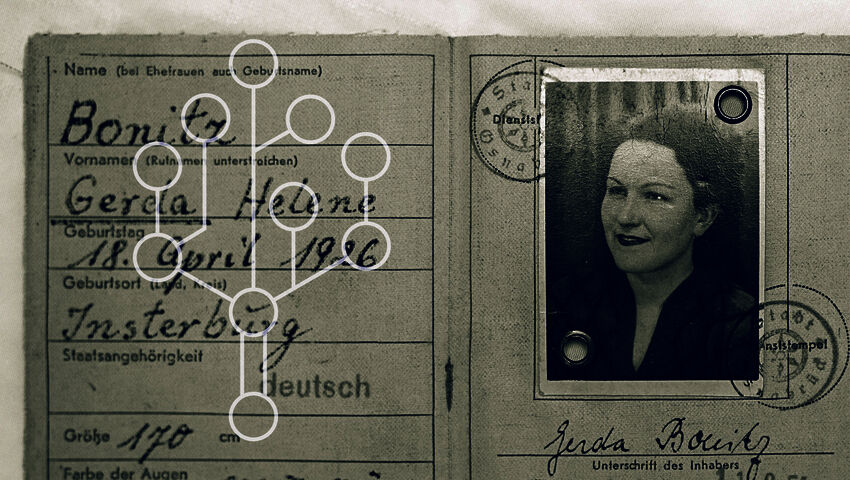 Name (bei Ehefrauen auch Geburtsname)
Bonitz
Vornamen (Rufnamen unterstreichen)
Gerda Helene
Geburtstag
18. April 1926
Geburtsort (Land, Kreis)
Insterburg
Staatsangehörigkeit
deutsch
Größe 170 cm
Farbe der Augen
Gerda Bonitz
Unterschrift des Inhabers